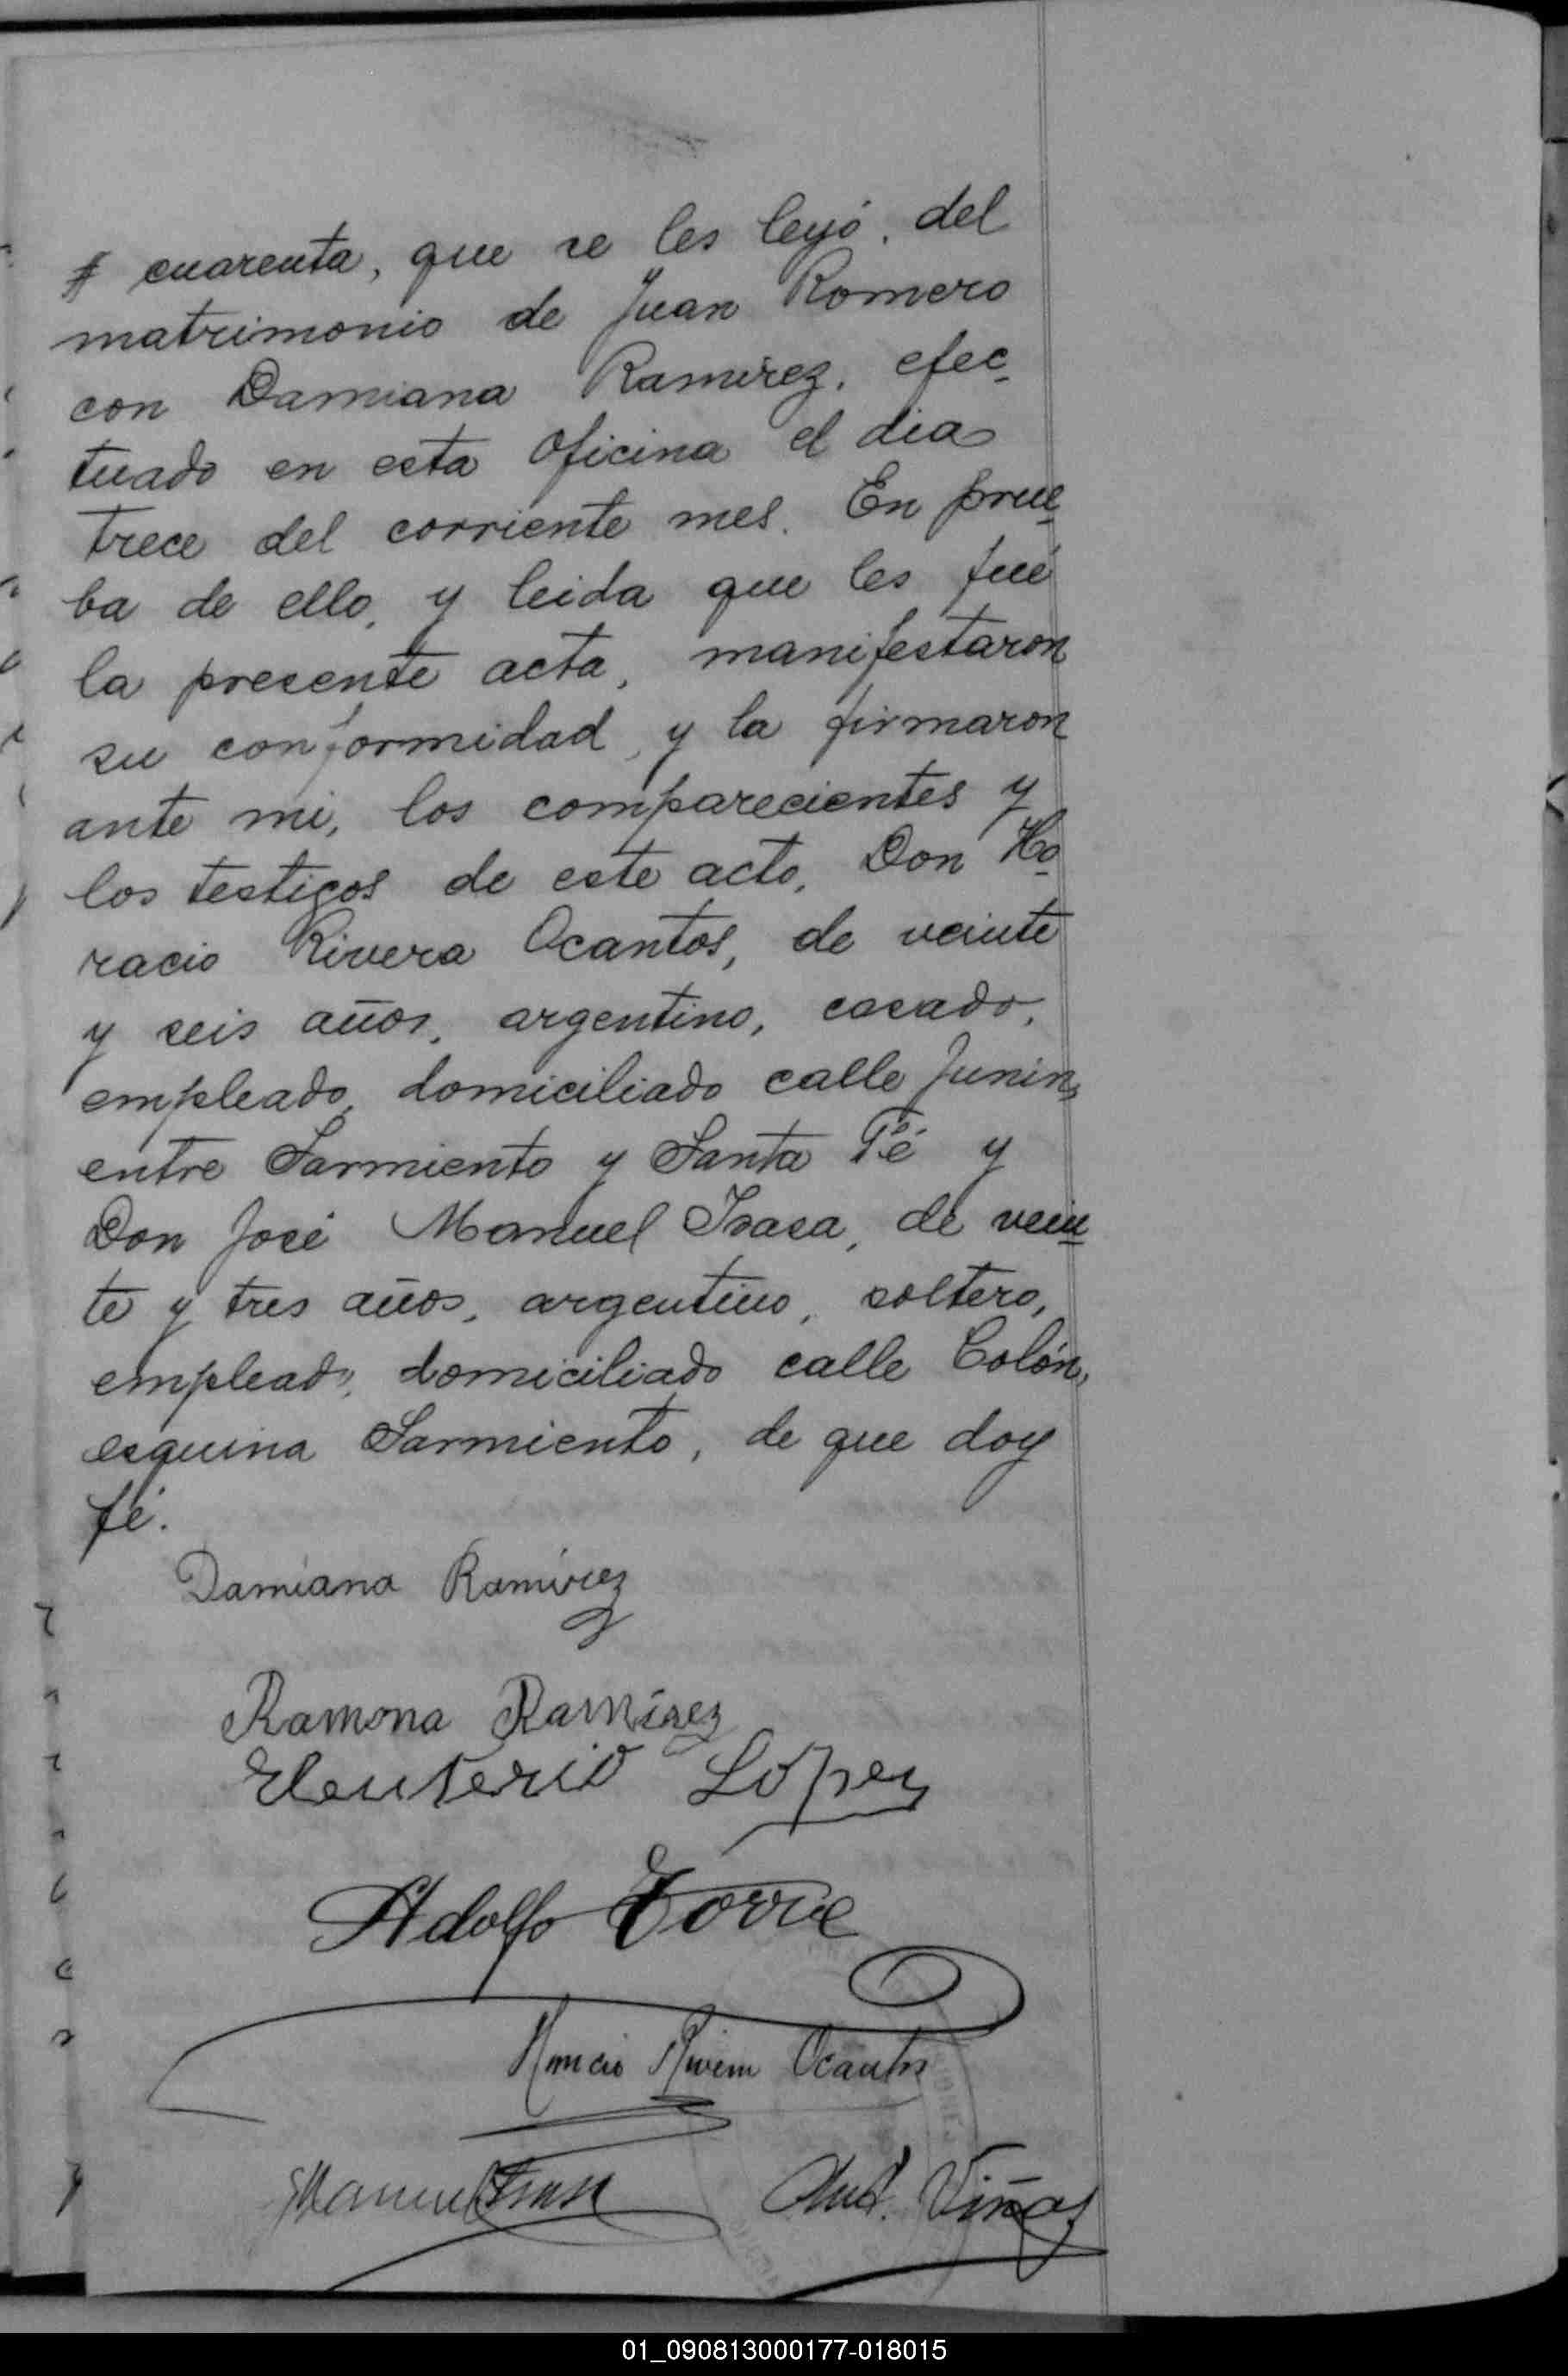 # cuarenta, que se les leyó, del
matrimonio de Juan Romero
con Damiana Ramirez, efec-
tuado en esta Oficina el dia
trece del corriente mes. En prue-
ba de ello, y leida que les fué
la presente acta, manifestaron
su conformidad, y la firmaron
ante mi, los comparecientes y
los testigos de este acto, Don Ho-
racio Rivera Ocantos, de veinte
y seis años, argentino, casado,
empleado, domiciliado calle Junin,
entre Sarmiento y Santa Fé y
Don José Manuel Isasa, de vein-
te y tres años, argentino, soltero,
empleado, domiciliado calle Colón,
esquina Sarmiento, de que doy
fé.
Damiana Ramirez
Ramona Ramírez
Eleuterio López
Adolfo Torre
Horacio Rivera Ocantos
JManuel Isasa Ant. Viñas
01_090813000177-018015